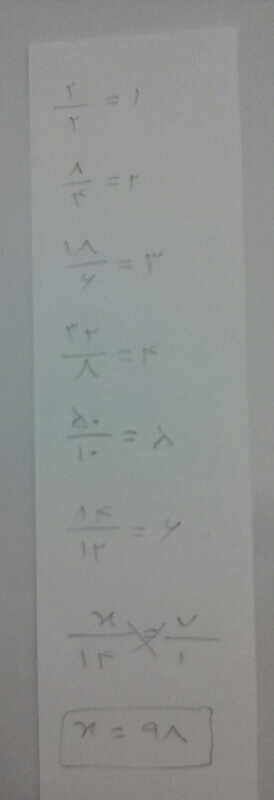 ۲/۲ = ۱
۸/۴ = ۲
۱۸/۶ = ۳
۳۲/۸ = ۴
۵۰/۱۰ = ۵
۸۴/۱۲ = ۶
x/۱۴ = ۷/۱
x = ۹۸